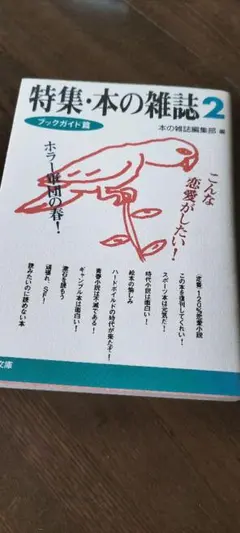 特集・本の雑誌2
ブックガイド篇
本の雑誌編集部 編
こんな
恋愛がしたい!
ホラー軍団の春!
この本を復刊してくれい!
スポーツ本は元気だ!
時代小説は面白い!
絵本の愉しみ
ハードボイルドの時代が来たぞ!
青春小説は不滅である!
ギャンブル本は面白い!
漱石を読もう
頑張れ、SF!
読みたいのに読めない本
文庫